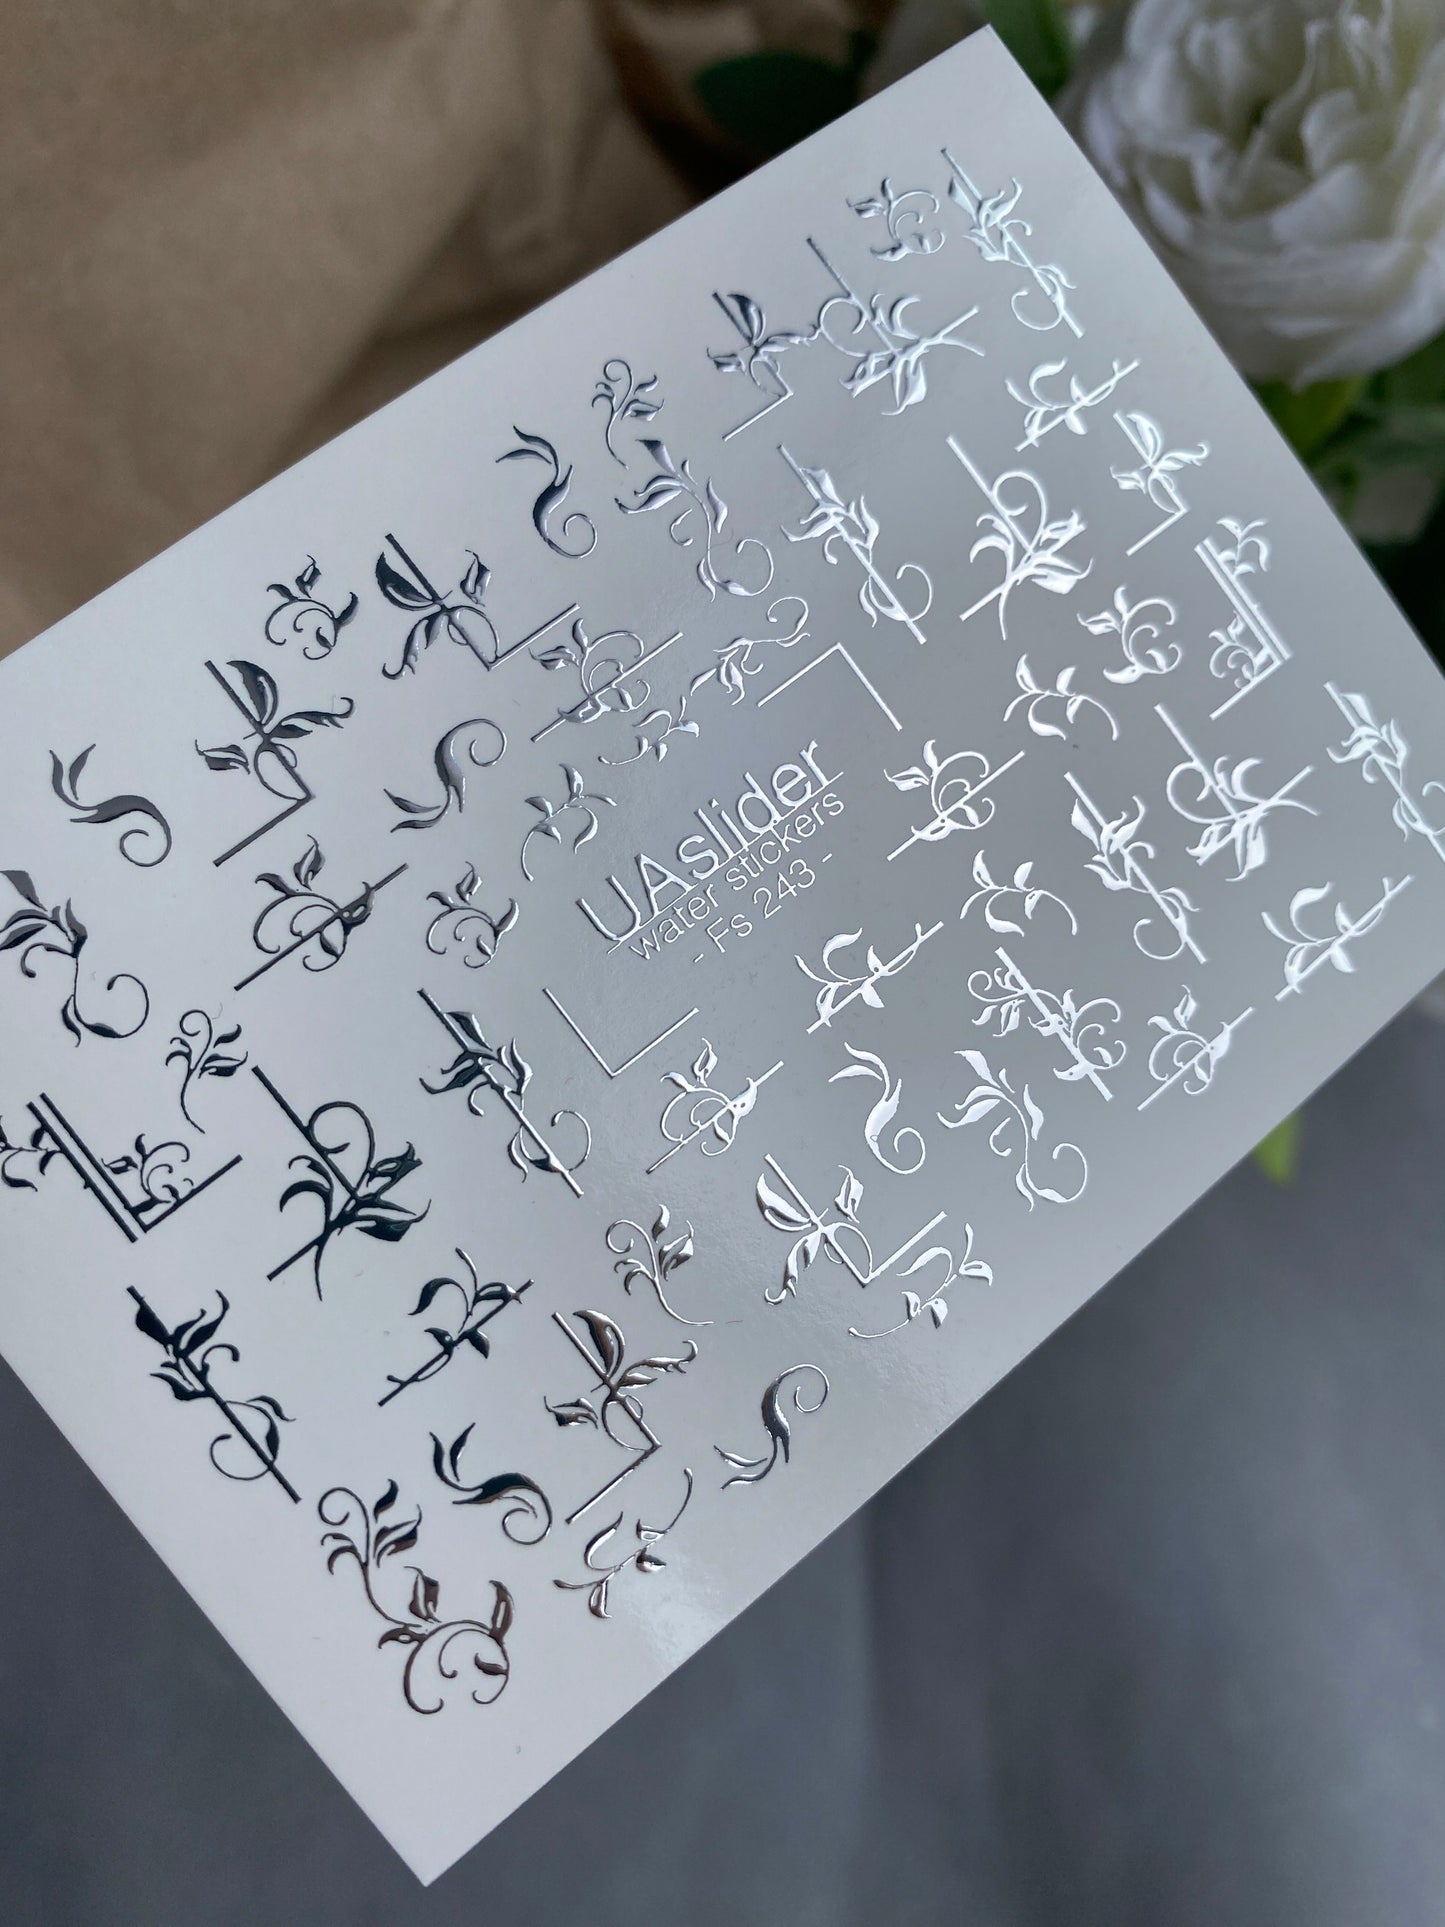 UAslider
water stickers
- Fs 243 -